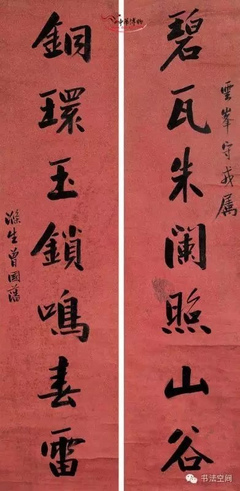 雲峯守戎屬
碧瓦朱闌照山谷
銅環玉鎖鳴春雷
滌生曾國藩
中华博物
书法空间